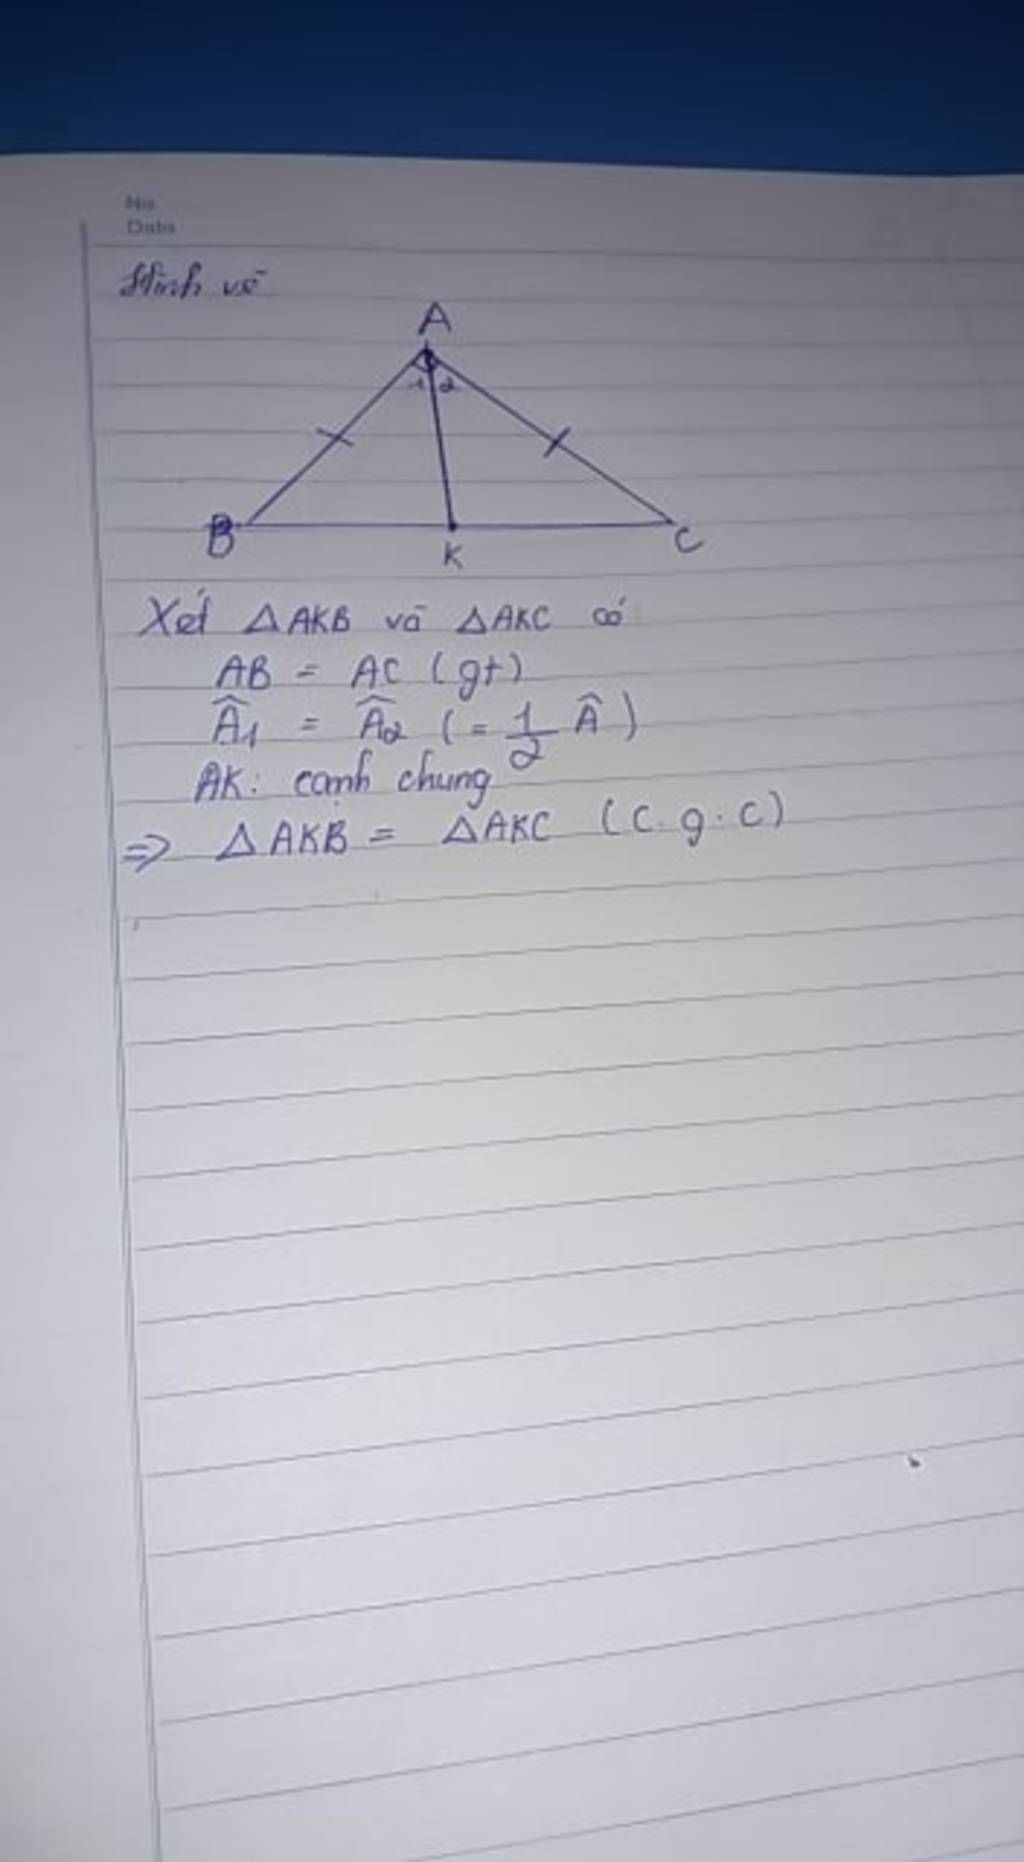 No
Date
Hình vẽ
A
1 2
B K C
Xét △AKB và △AKC có
AB = AC (gt)
Â1 = Â2 (= 1/2 Â)
AK: cạnh chung
=> △AKB = △AKC (c.g.c)